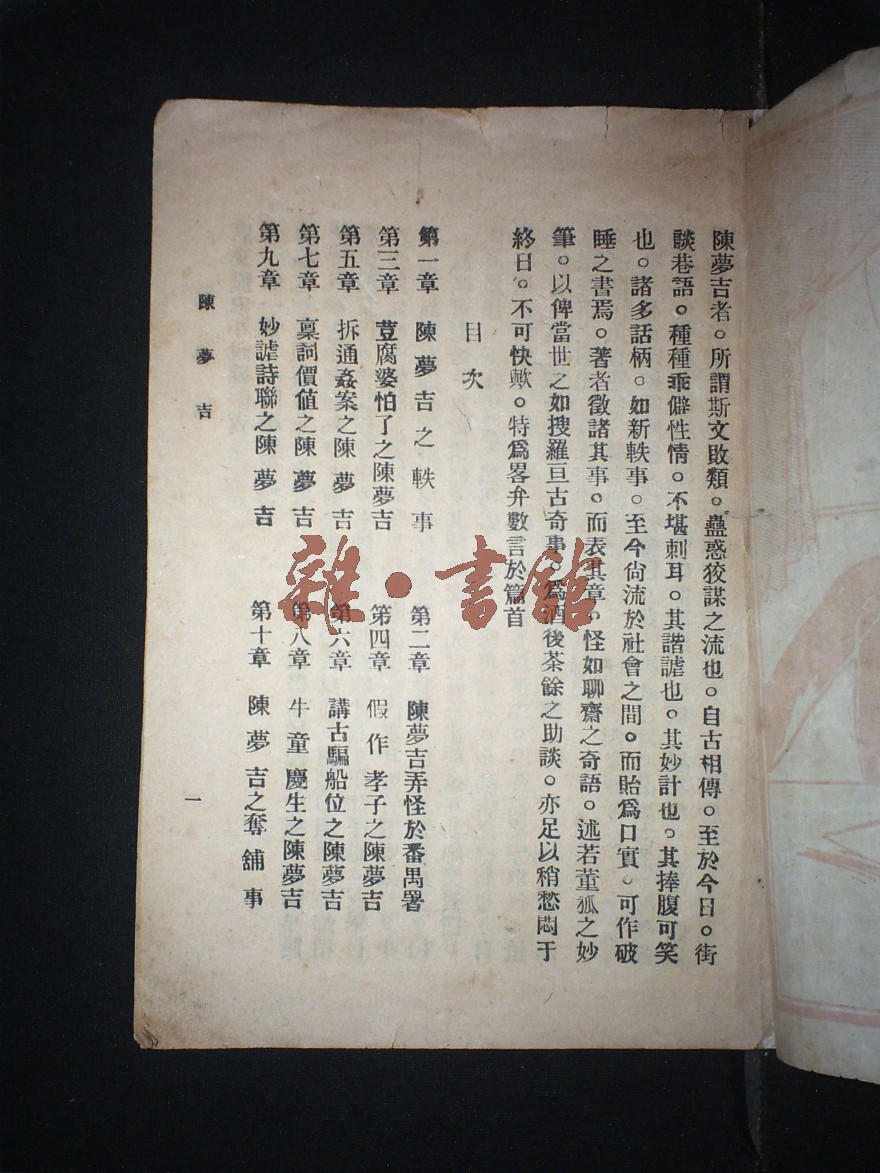 陳夢吉者。所謂斯文敗類。蠱惑狡謀之流也。自古相傳。至於今日。街
談巷語。種種乖僻性情。不堪刺耳。其諧謔也。其妙計也。其捧腹可笑
也。諸多話柄。如新軼事。至今尙流於社會之間。而貽爲口實。可作破
睡之書焉。著者徵諸其事。而表其章。怪如聊齋之奇語。述若董狐之妙
筆。以俾當世之如搜羅亘古奇事。爲酒後茶餘之助談。亦足以稍愁悶于
終日。不可快歟。特爲畧弁數言於篇首
目次
第一章 陳夢吉之軼事
第二章 陳夢吉弄怪於番禺署
第三章 荳腐婆怕了之陳夢吉
第四章 假作孝子之陳夢吉
第五章 拆通姦案之陳夢吉
第六章 講古騙船位之陳夢吉
第七章 稟詞價値之陳夢吉
第八章 牛童慶生之陳夢吉
第九章 妙謔詩聯之陳夢吉
第十章 陳夢吉之奪舖事
陳夢吉
一
雜·書館